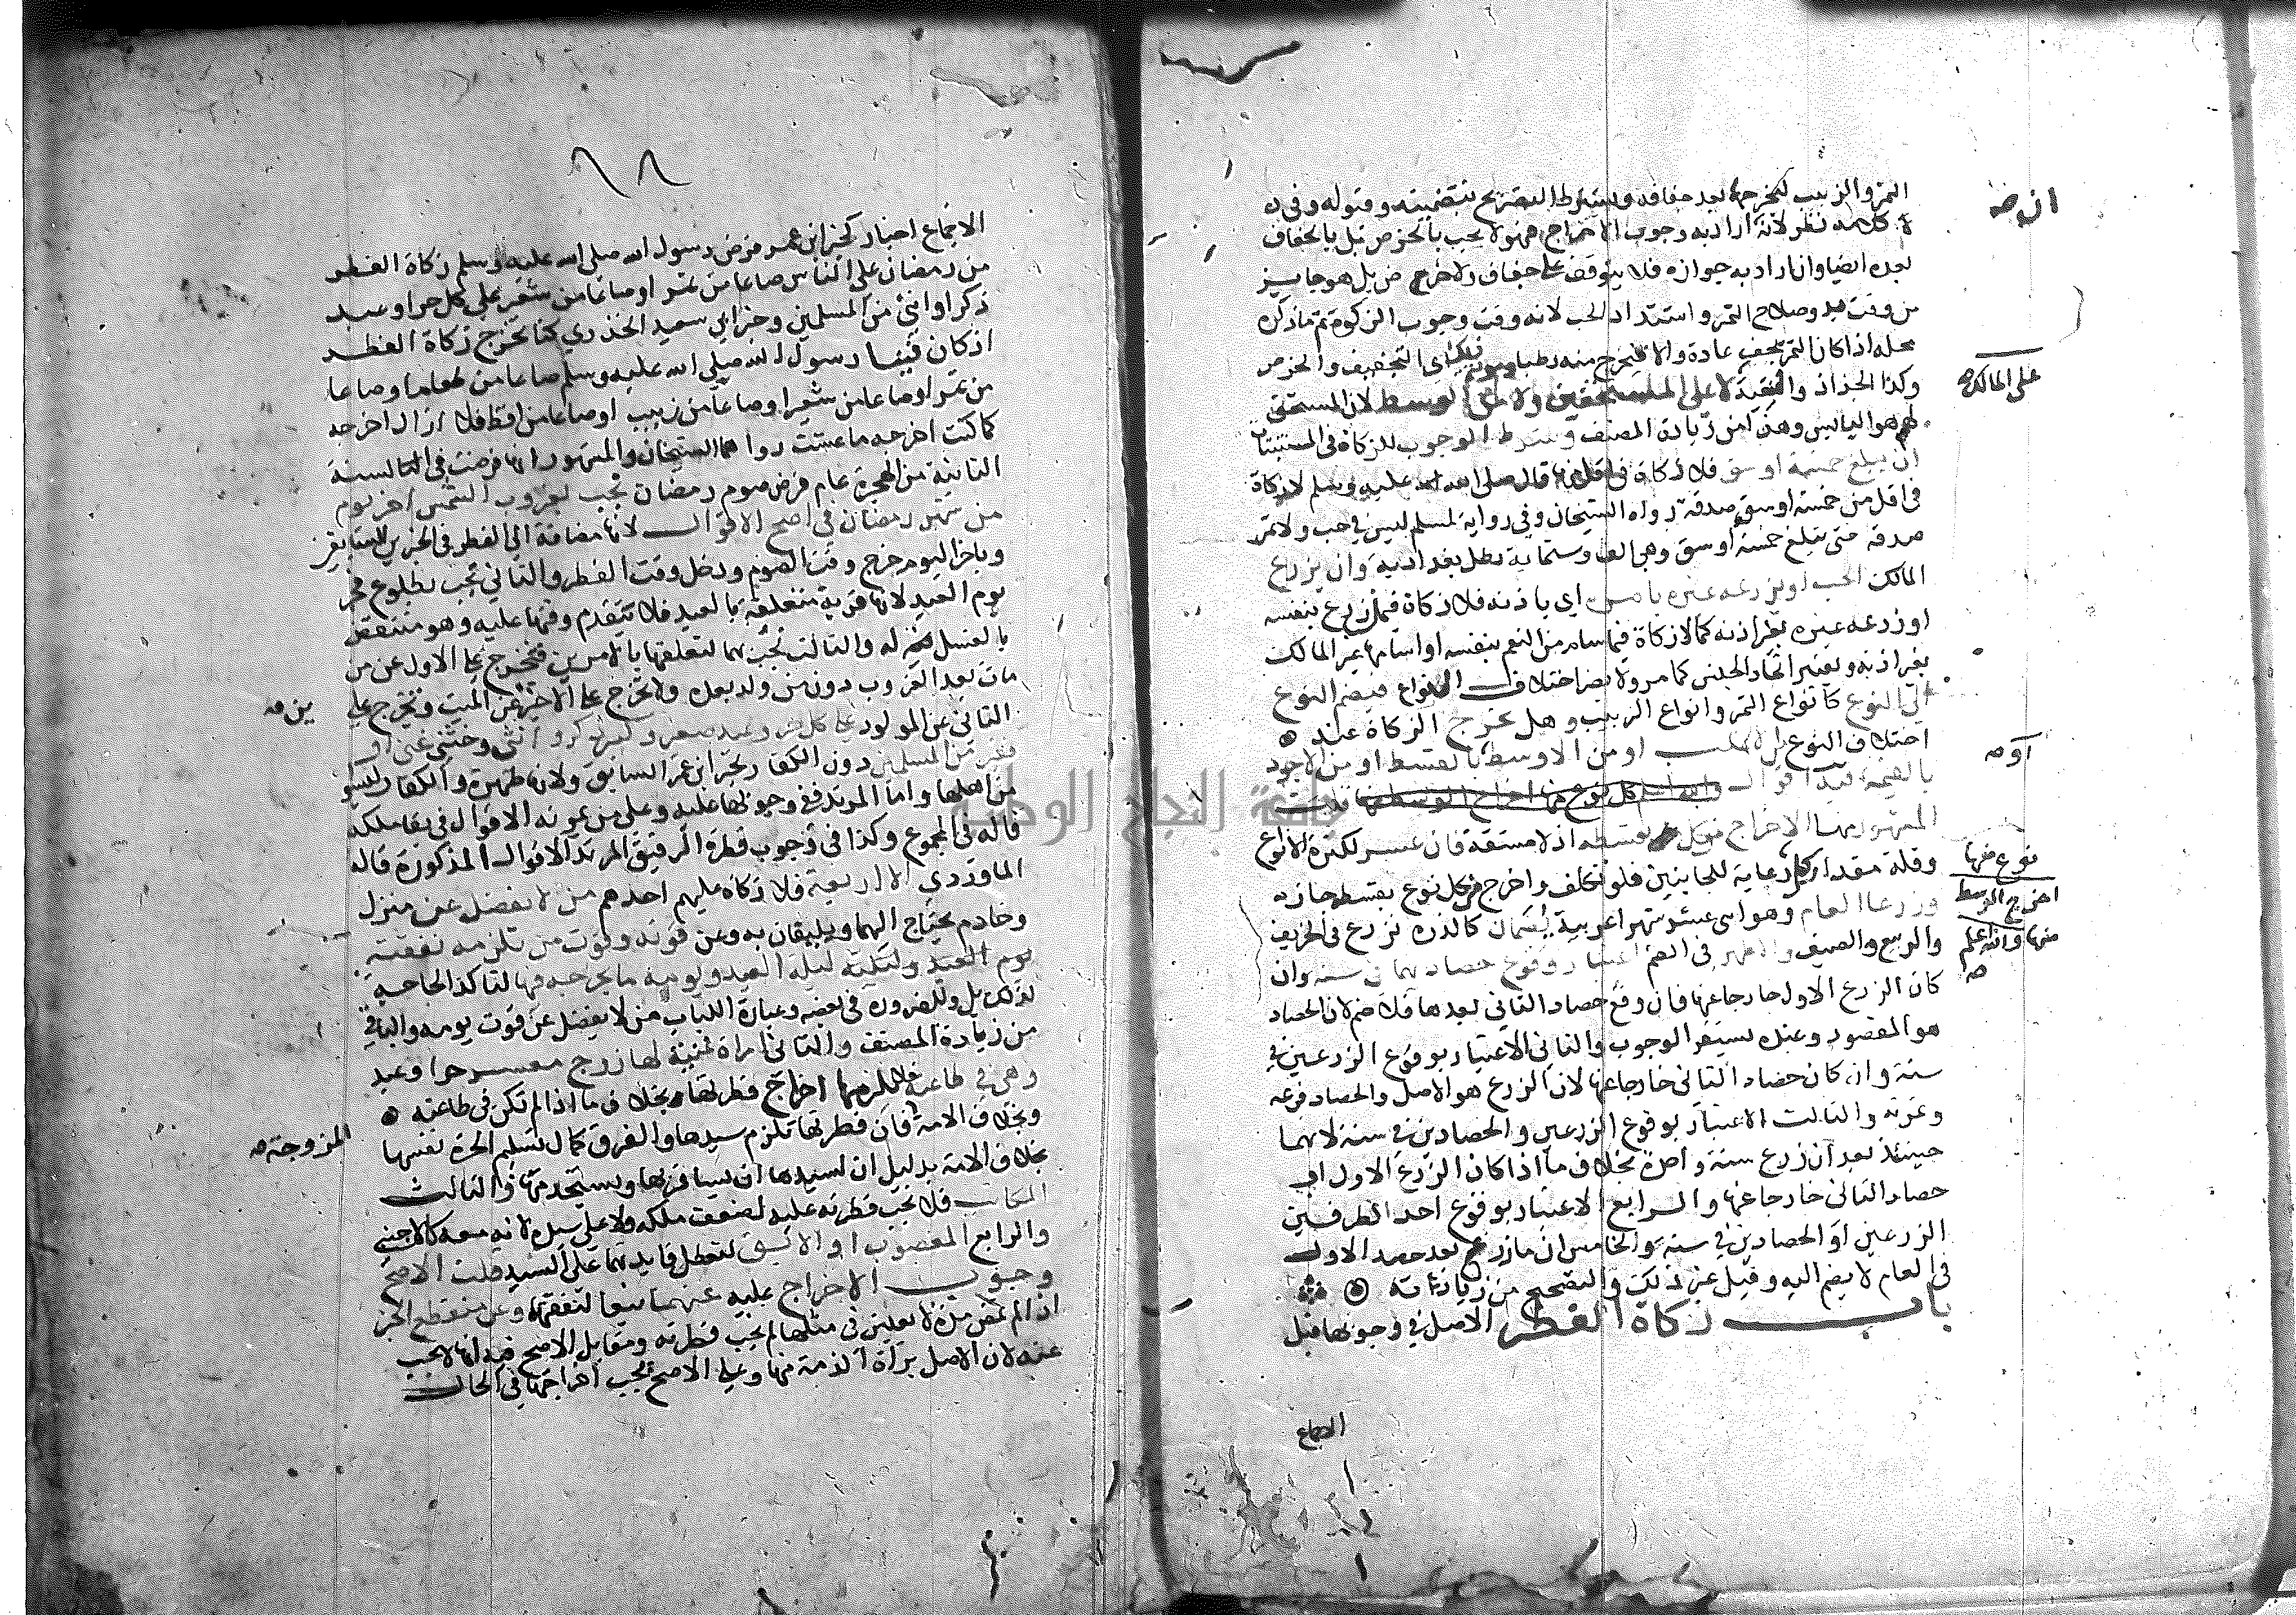 التمر والزبيب لتخرجها بعد جفافه ويشترط التصريح بتضمينه وقبوله وفي
كلامه نظر لانه اراد به وجوب الاخراج فهو لا يجب بالخرص بل بالجفاف
بعده ايضا وان اراد به جوازه فلا يتوقف على جفاف ولا خرص بل هو جايز
من وقت بدو صلاح الثمر واشتداد الحب لانه وقت وجوب الزكوة ثم ما ذكره
محله اذا كان الثمر يجف عادة والا فيخرج منه رطبا ومونة اي التجفيف والخرص
وكذا الجذاذ والتنقية لا على المستحقين ولا من الوسط لان المستحق
لهم هو اليابس وهذا من زيادة المصنف وشرط الوجوب للزكاة في المستنبتات
ان يبلغ خمسة اوسق فلا زكاة في اقل منها قال صلى الله عليه وسلم لا زكاة
في اقل من خمسة اوسق صدقة رواه الشيخان وفي رواية لمسلم ليس في حب ولا تمر
صدقة حتى يبلغ خمسة اوسق وهي الف وستماية رطل بغدادية وان يزرع
المالك الحب او يزرعه غيره بامره اي باذنه فلا زكاة فيما انزرع بنفسه
او زرعه غيره بغير اذنه كما لا زكاة فيما سام من النعم بنفسه او اسامها غير المالك
بغير اذنه ويعتبر اتحاد الجنس كما مر ولا يضر اختلاف الانواع فيضم النوع
الى النوع كانواع التمر وانواع الزبيب وهل يخرج الزكاة عند
اختلاف النوع من الاغلب او من الاوسط بالقسط او من الاجود
بالقيمة فيه اقوال
المشهور منها الاخراج من كل بقسطه اذ لا مشقة فان عسر لكثرة الانواع
وقلة مقدار كل رعاية للجانبين فلو تكلف واخرج من كل نوع بقسطه جاز
وزرعا العام وهو اثنى عشر شهرا عربية يضمان كالذرة تزرع في الخريف
والربيع والصيف والاظهر في الضم اعتبار وقوع حصاديهما في سنة وان
كان الزرع الاول خارجا عنها فان وقع حصاد الثاني بعدها فلا ضم لان الحصاد
هو المقصود وعنده يستقر الوجوب والثاني الاعتبار بوقوع الزرعين في
سنة وان كان حصاد الثاني خارجا عنها لان الزرع هو الاصل والحصاد فرعه
وثمرته والثالث الاعتبار بوقوع الزرعين والحصادين في سنة لانهما
حينئذ يعد ان زرع سنة واحدة بخلاف ما اذا كان الزرع الاول او
حصاد الثاني خارجا عنها والرابع الاعتبار بوقوع احد الطرفين
الزرعين او الحصادين في سنة والخامس ان ما زرع بعد حصد الاول
في العام لا يضم اليه وقيل غير ذلك والتصحيح من زيادته
باب زكاة الفطر الاصل في وجوبها قبل
الاجماع
على المالك صح
نوع منها
اخرج الوسط
منها والله اعلم
صح
٦٨
الاجماع اخبار كخبر ابن عمر فرض رسول الله صلى الله عليه وسلم زكاة الفطر
من رمضان على الناس صاعا من تمر او صاعا من شعير على كل حر او عبد
ذكر او انثى من المسلمين وخبر ابي سعيد الخذري كنا نخرج زكاة الفطر
اذ كان فينا رسول الله صلى الله عليه وسلم صاعا من طعام او صاعا
من تمر او صاعا من شعير او صاعا من زبيب او صاعا من اقط فلا ازال اخرجه
كما كنت اخرجه ما عشت رواهما الشيخان والمشهور انها فرضت في السنة
الثانية من الهجرة عام فرض صوم رمضان تجب بغروب الشمس اخر يوم
من شهر رمضان في اصح الاقوال لانها مضافة الى الفطر في الخبرين السابقين
وباخر اليوم خرج وقت الصوم ودخل وقت الفطر والثاني تجب بطلوع فجر
يوم العيد لانها قربة متعلقة بالعيد فلا تتقدم وقتها عليه وهو منتقض
بالغسل له والثالث تجب بهما لتعلقها بالامرين فتخرج على الاول عن من
مات بعد الغروب دون من ولد بعده ولا تخرج على الاخيرين عن الميت وتخرج على
الثاني عن المولود على كل حر وعبد صغير وكبير ذكر وانثى وخنثى غني او
فقير من المسلمين دون الكفار لخبر ابن عمر السابق ولانها طهرة والكفار ليسوا
من اهلها واما المرتد ففي وجوبها عليه وعلى من يمونه الاقوال في بقا ملكه
قاله في المجموع وكذا في وجوب فطرة الرقيق المرتد الاقوال المذكورة قاله
الماوردي الا اربعة فلا زكاة عليهم احدهم من لا يفضل عن منزل
وخادم يحتاج اليهما ويليقان به وعن قوته وقوت من تلزمه نفقته
يوم العيد وليلته ليلة العيد ويومه ما يخرجه فيها لتاكد الحاجة
لذلك بل وللضرورة في بعضه وعبارة اللباب من لا يفضل عن قوت يومه والباقي
من زيادة المصنف والثاني امراة غنية لها زوج معسر حر او عبد
وهي في طاعته فلا يلزمها اخراج فطرتها بخلاف ما اذا لم تكن في طاعته
وبخلاف الامة فان فطرتها تلزم سيدها والفرق كمال تسليم الحرة نفسها
بخلاف الامة بدليل ان لسيدها ان يسافر بها ويستخدمها والثالث
المكاتب فلا تجب فطرته عليه لضعف ملكه ولا على سيده لانه معه كالاجنبي
والرابع المغصوب او الابق لتعطل فايدتهما على السيد قلت الاصح
وجوب الاخراج عليه عنهما تبعا لنفقتهما وعن منقطع الخبر
ان لم تمض مدة لا يعيش في مثلها لم تجب فطرته ومقابل الاصح فيه انها لا تجب
عنه لان الاصل براة الذمة منها وعلى الاصح تجب اخراجها في الحال
ين صح
المزوجة صح